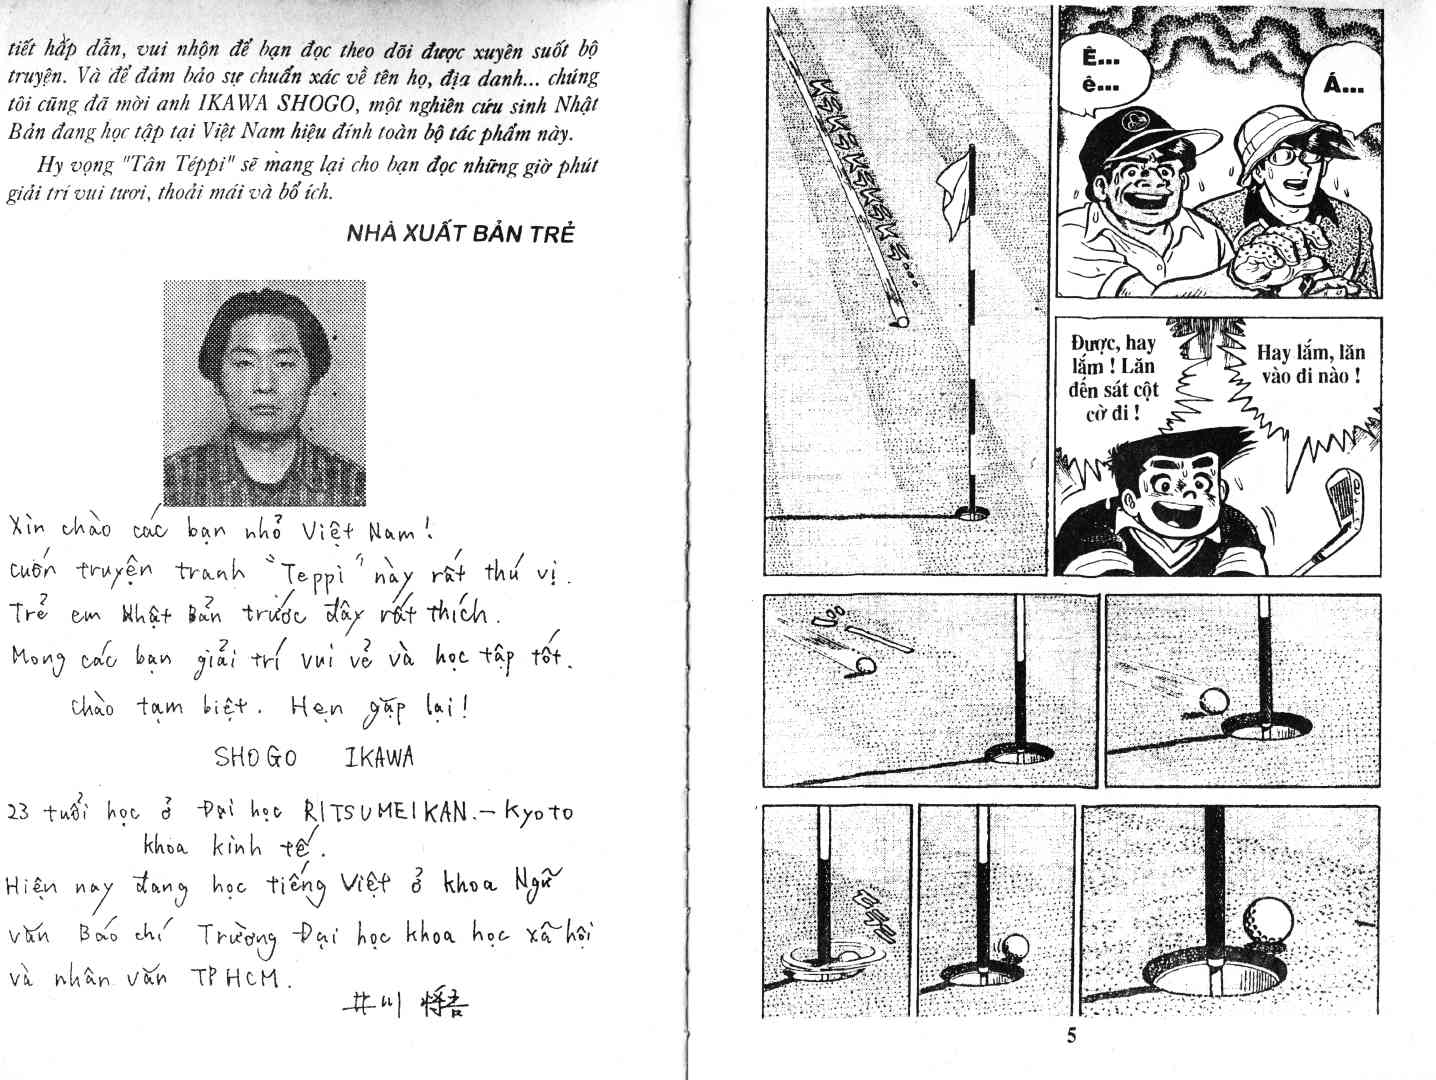 tiết hấp dẫn, vui nhộn để bạn đọc theo dõi được xuyên suốt bộ
truyện. Và để đảm bảo sự chuẩn xác về tên họ, địa danh... chúng
tôi cũng đã mời anh IKAWA SHOGO, một nghiên cứu sinh Nhật
Bản đang học tập tại Việt Nam hiệu đính toàn bộ tác phẩm này.
Hy vọng "Tân Téppi" sẽ mang lại cho bạn đọc những giờ phút
giải trí vui tươi, thoải mái và bổ ích.
NHÀ XUẤT BẢN TRẺ
Xin chào các bạn nhỏ Việt Nam!
Cuốn truyện tranh "Teppi" này rất thú vị.
Trẻ em Nhật Bản trước đây rất thích.
Mong các bạn giải trí vui vẻ và học tập tốt.
Chào tạm biệt. Hẹn gặp lại!
SHOGO IKAWA
23 tuổi học ở Đại học RITSUMEIKAN. – Kyoto
khoa kinh tế.
Hiện nay đang học tiếng Việt ở khoa Ngữ
văn Báo chí Trường Đại học khoa học xã hội
và nhân văn TPHCM.
井川 将吾
Ê...
ê...
Á...
Được, hay
lắm ! Lăn
đến sát cột
cờ đi !
Hay lắm, lăn
vào đi nào !
5